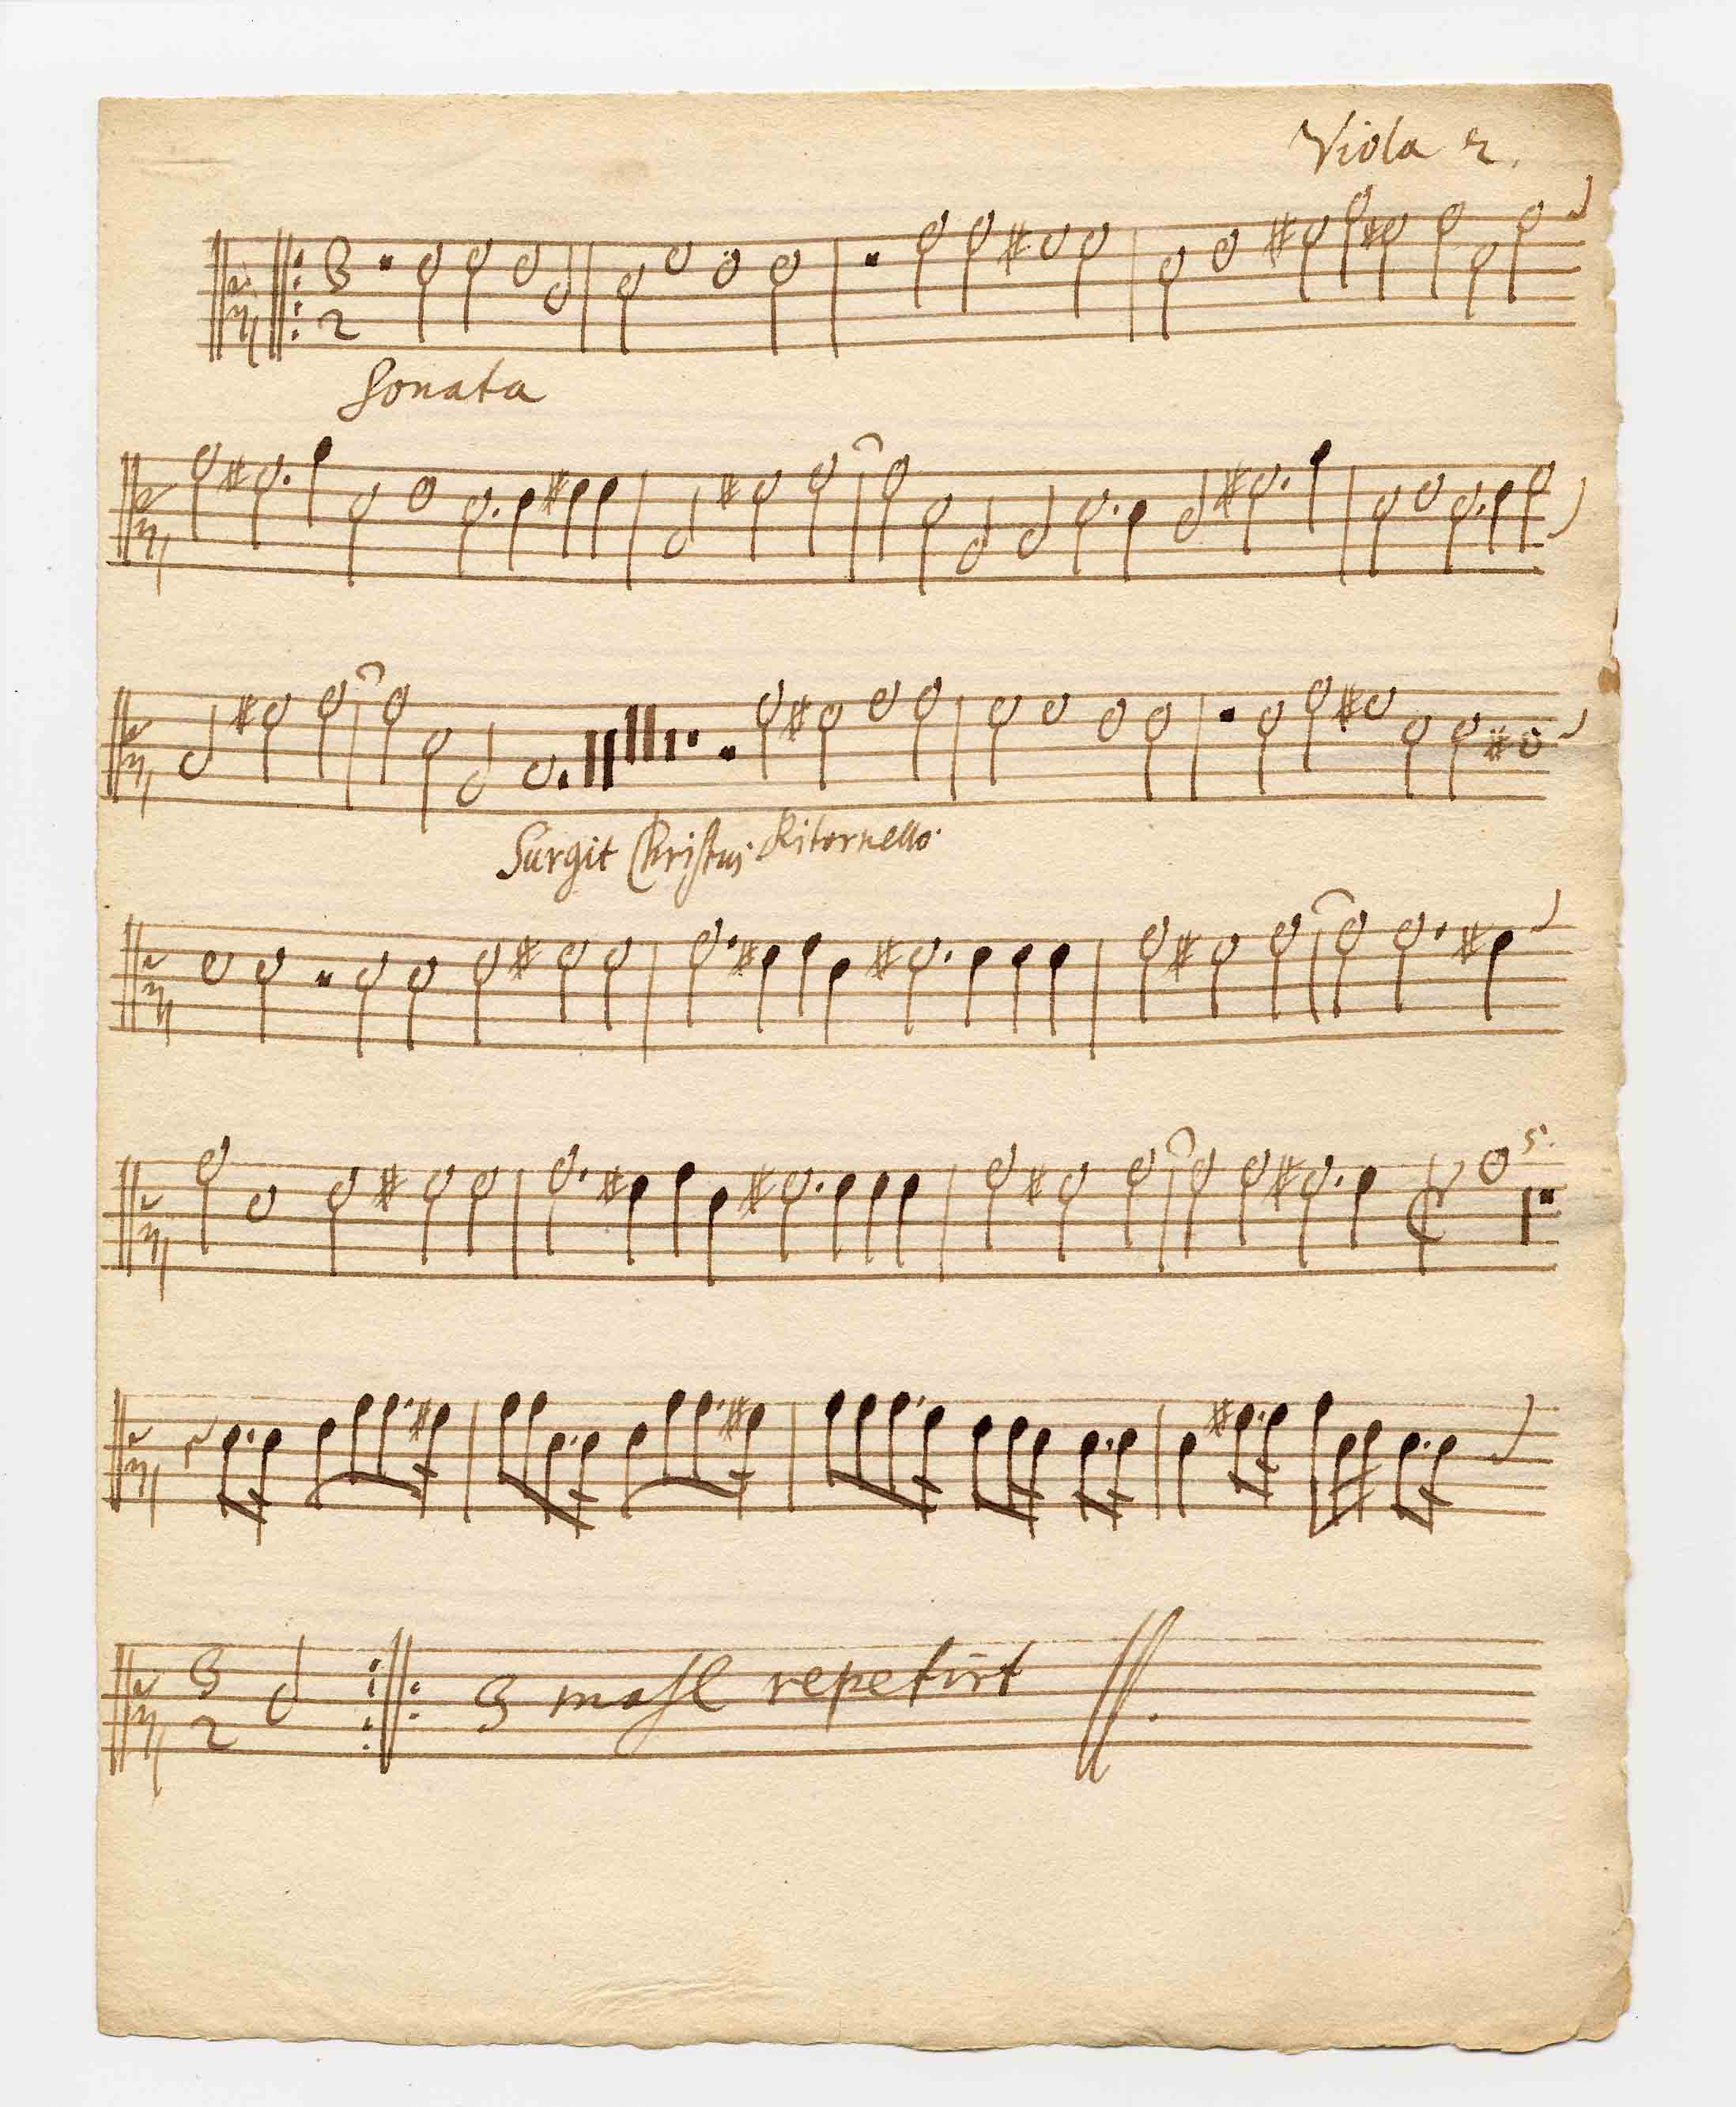 Viola 2.
3
2
Sonata
Surgit Christus Ritornello
5.
3
2
3 mahl repetirt